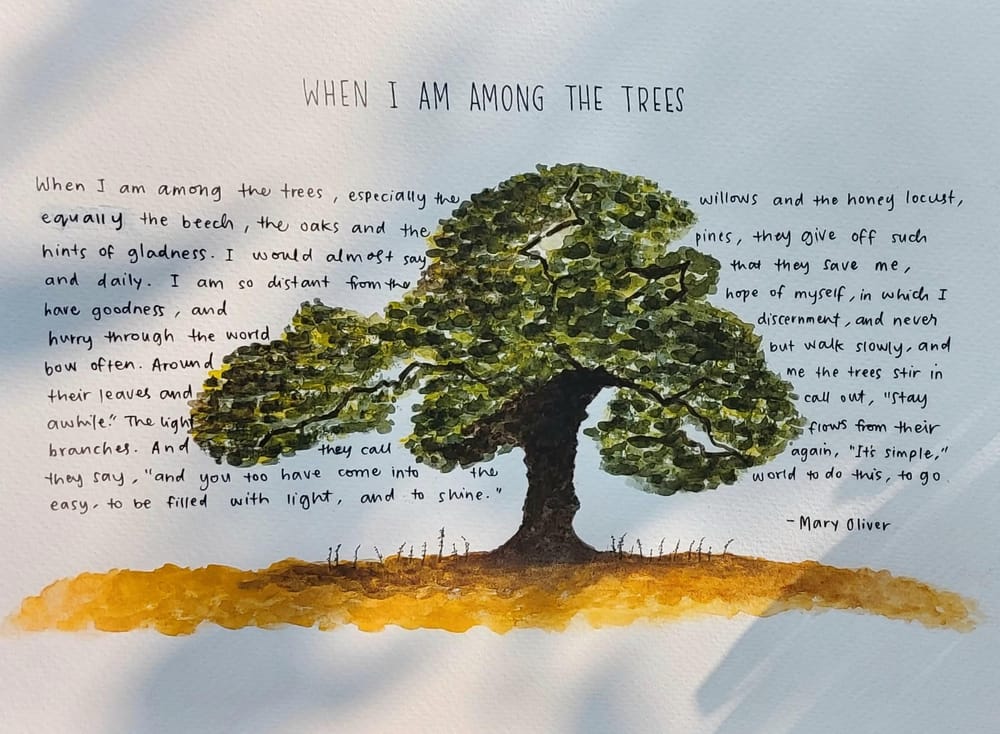 WHEN I AM AMONG THE TREES
When I am among the trees, especially the willows and the honey locust,
equally the beech, the oaks and the pines, they give off such
hints of gladness. I would almost say that they save me,
and daily. I am so distant from the hope of myself, in which I
have goodness, and discernment, and never
hurry through the world but walk slowly, and
bow often. Around me the trees stir in
their leaves and call out, "Stay
awhile." The light flows from their
branches. And they call again, "It's simple,"
they say, "and you too have come into the world to do this, to go
easy, to be filled with light, and to shine."
- Mary Oliver